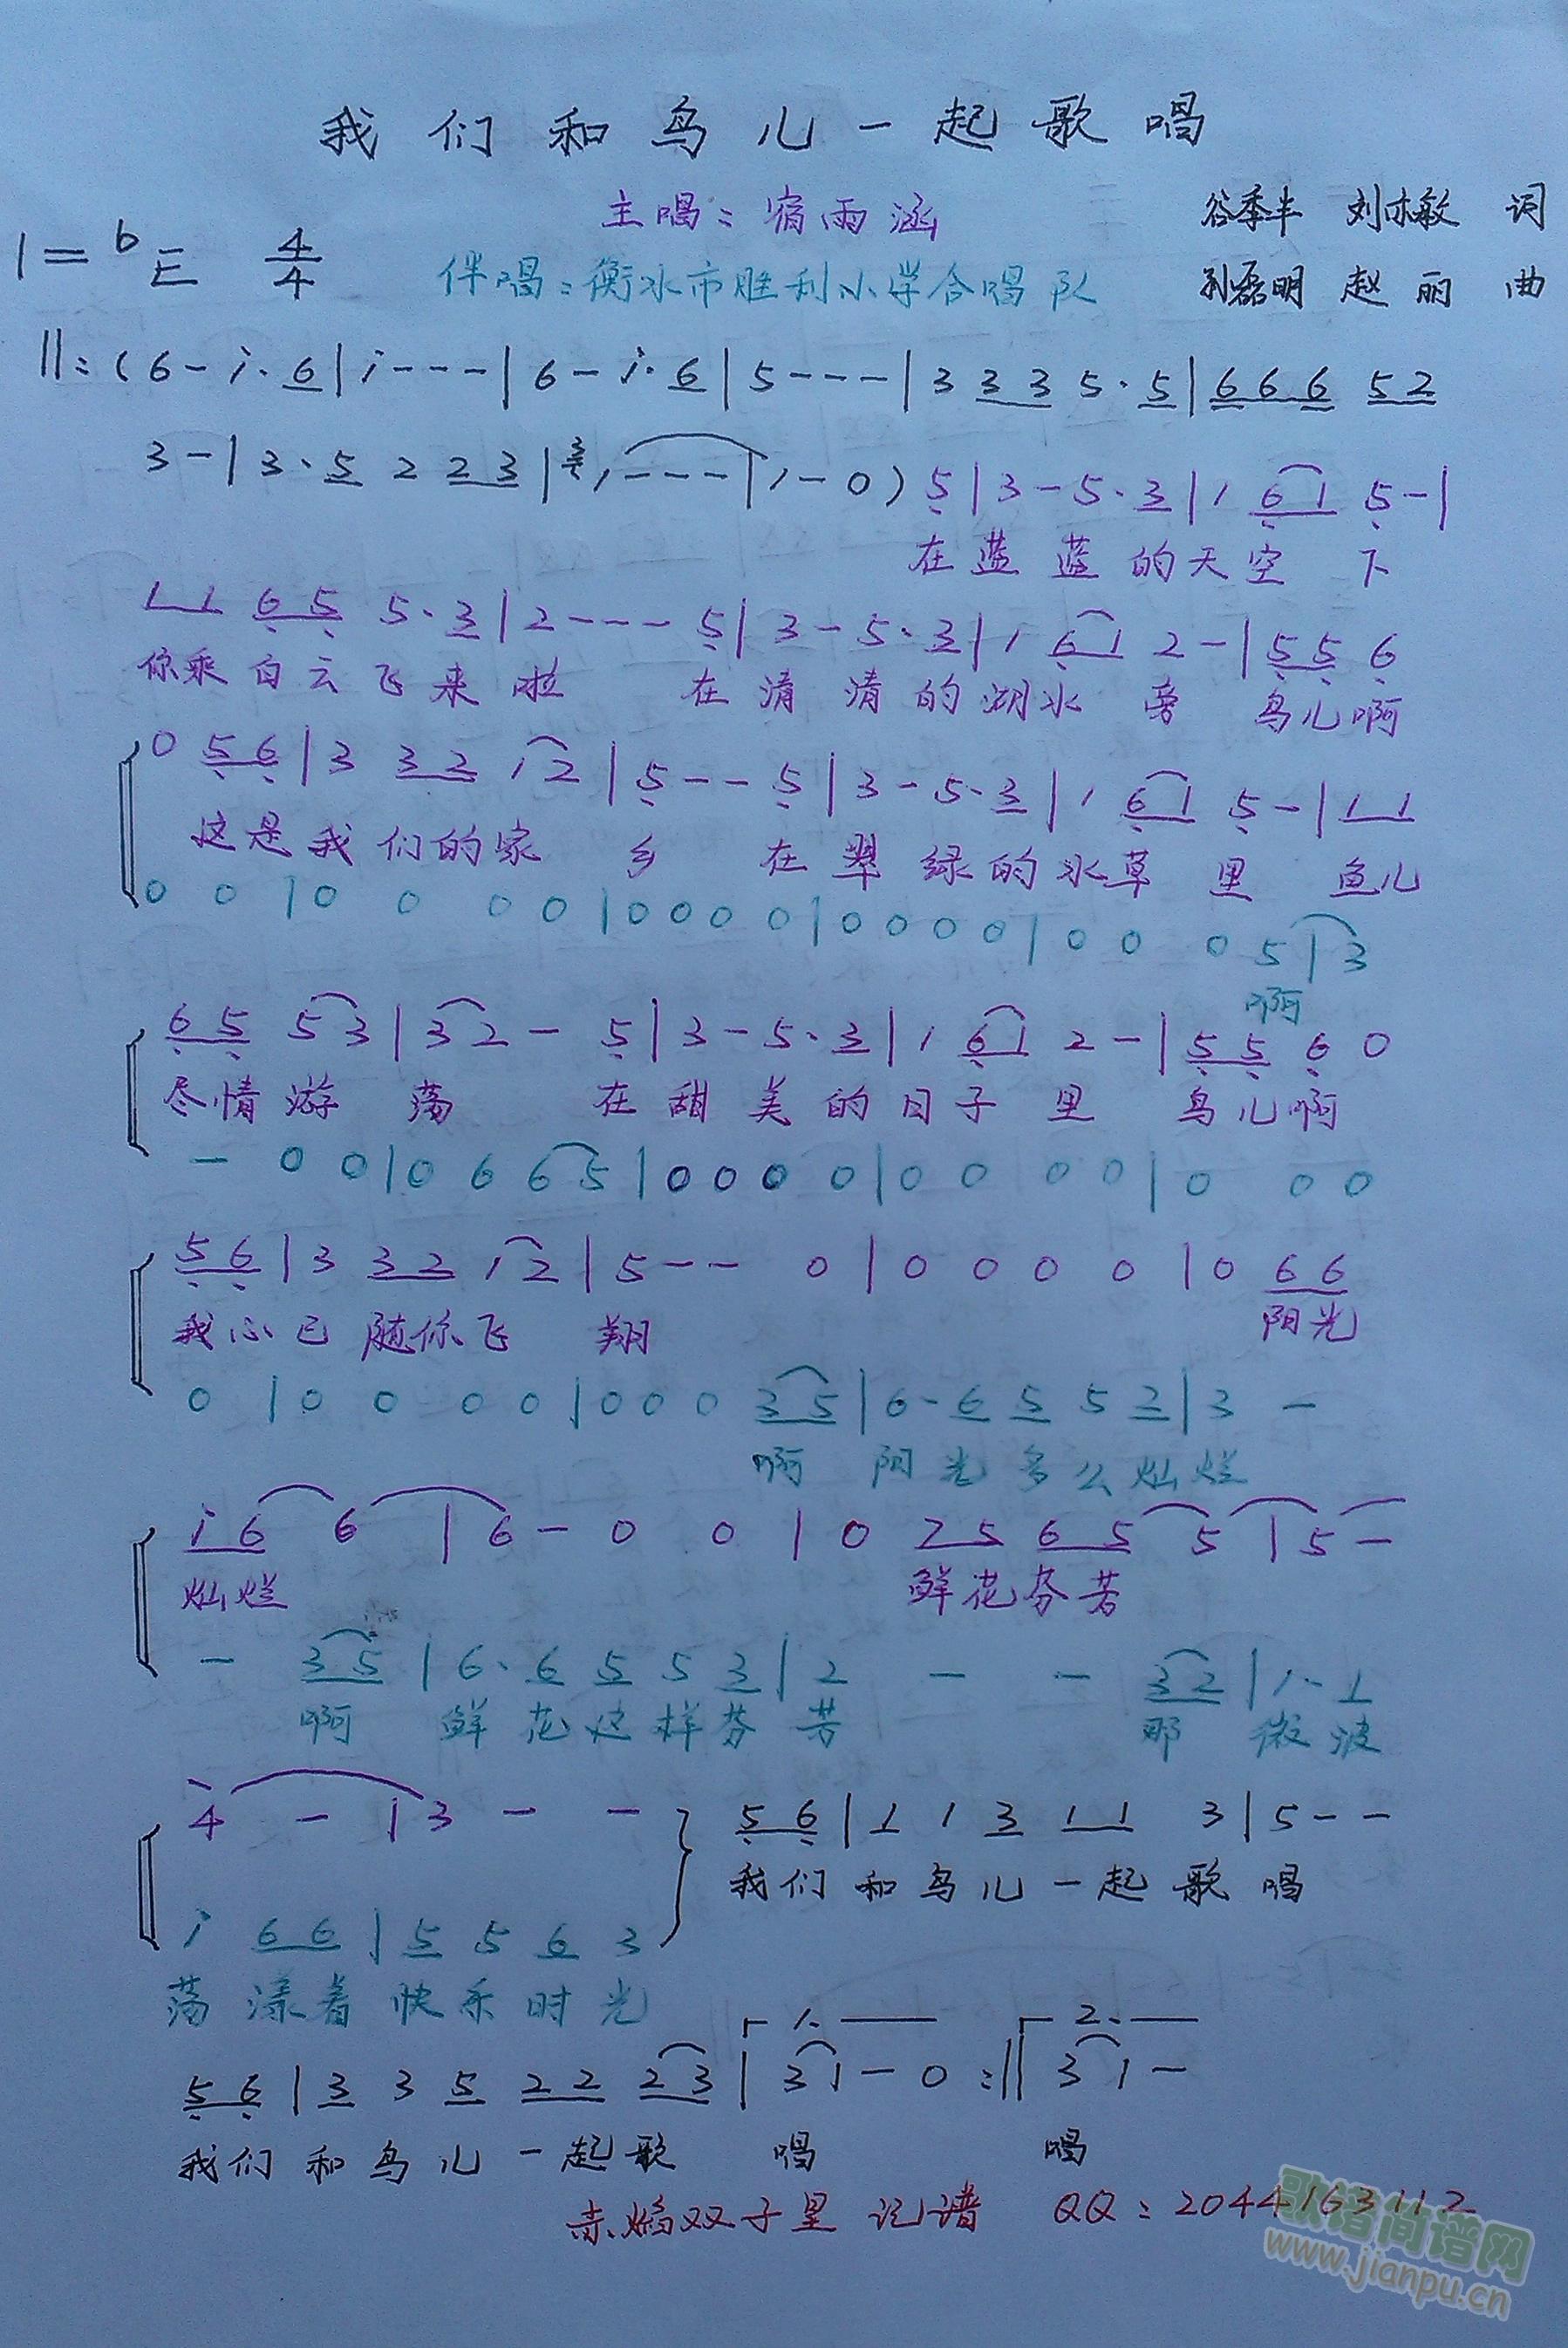 我们和鸟儿一起歌唱
主唱：宿雨涵 谷季丰 刘亦敏 词
1=bE 4/4 伴唱：衡水市胜利小学合唱队 孙磊明 赵丽 曲
||:(6-i·6|i---|6-i·6|5---|3 33 5·5|666 52
3-|3·5 2 23|1---|1-0) 5|3-5·3|1 61 5-|
在蓝蓝的天空下
11 65 5·3|2---5|3-5·3|1 61 2-|55 6
你乘白云飞来啦 在清清的湖水旁 鸟儿啊
0 56|3 32 12|5--5|3-5·3|1 61 5-|11
这是我们的家乡 在翠绿的水草里 鱼儿
0 0|0 0 0 0|0 0 0 0|0 0 0 0|0 0 0 5|3
啊
65 53|32-5|3-5·3|1 61 2-|55 6 0
尽情游荡 在甜美的日子里 鸟儿啊
- 0 0|0 6 65|0 0 0 0|0 0 0 0|0 0 0
56|3 32 12|5--0|0 0 0 0|0 66
我心已随你飞翔 阳光
0|0 0 0 0|0 0 0 35|6·6 5 5 2|3 -
啊 阳光多么灿烂
i6 6|6-0 0|0 25 65 5|5-
灿烂 鲜花芬芳
- 35|6·6 5 5 3|2 - - 32|1·1
啊 鲜花这样芬芳 那微波
4 - |3 - - 56|1 1 3 11 3|5--
我们和鸟儿一起歌唱
i 66|5 5 6 3
荡漾着快乐时光
1. 2.
56|3 3 5 22 23|31-0:||31-
我们和鸟儿一起歌唱 唱
赤焰双子星 记谱 QQ：2044163112
歌谱简谱网
www.jianpu.cn